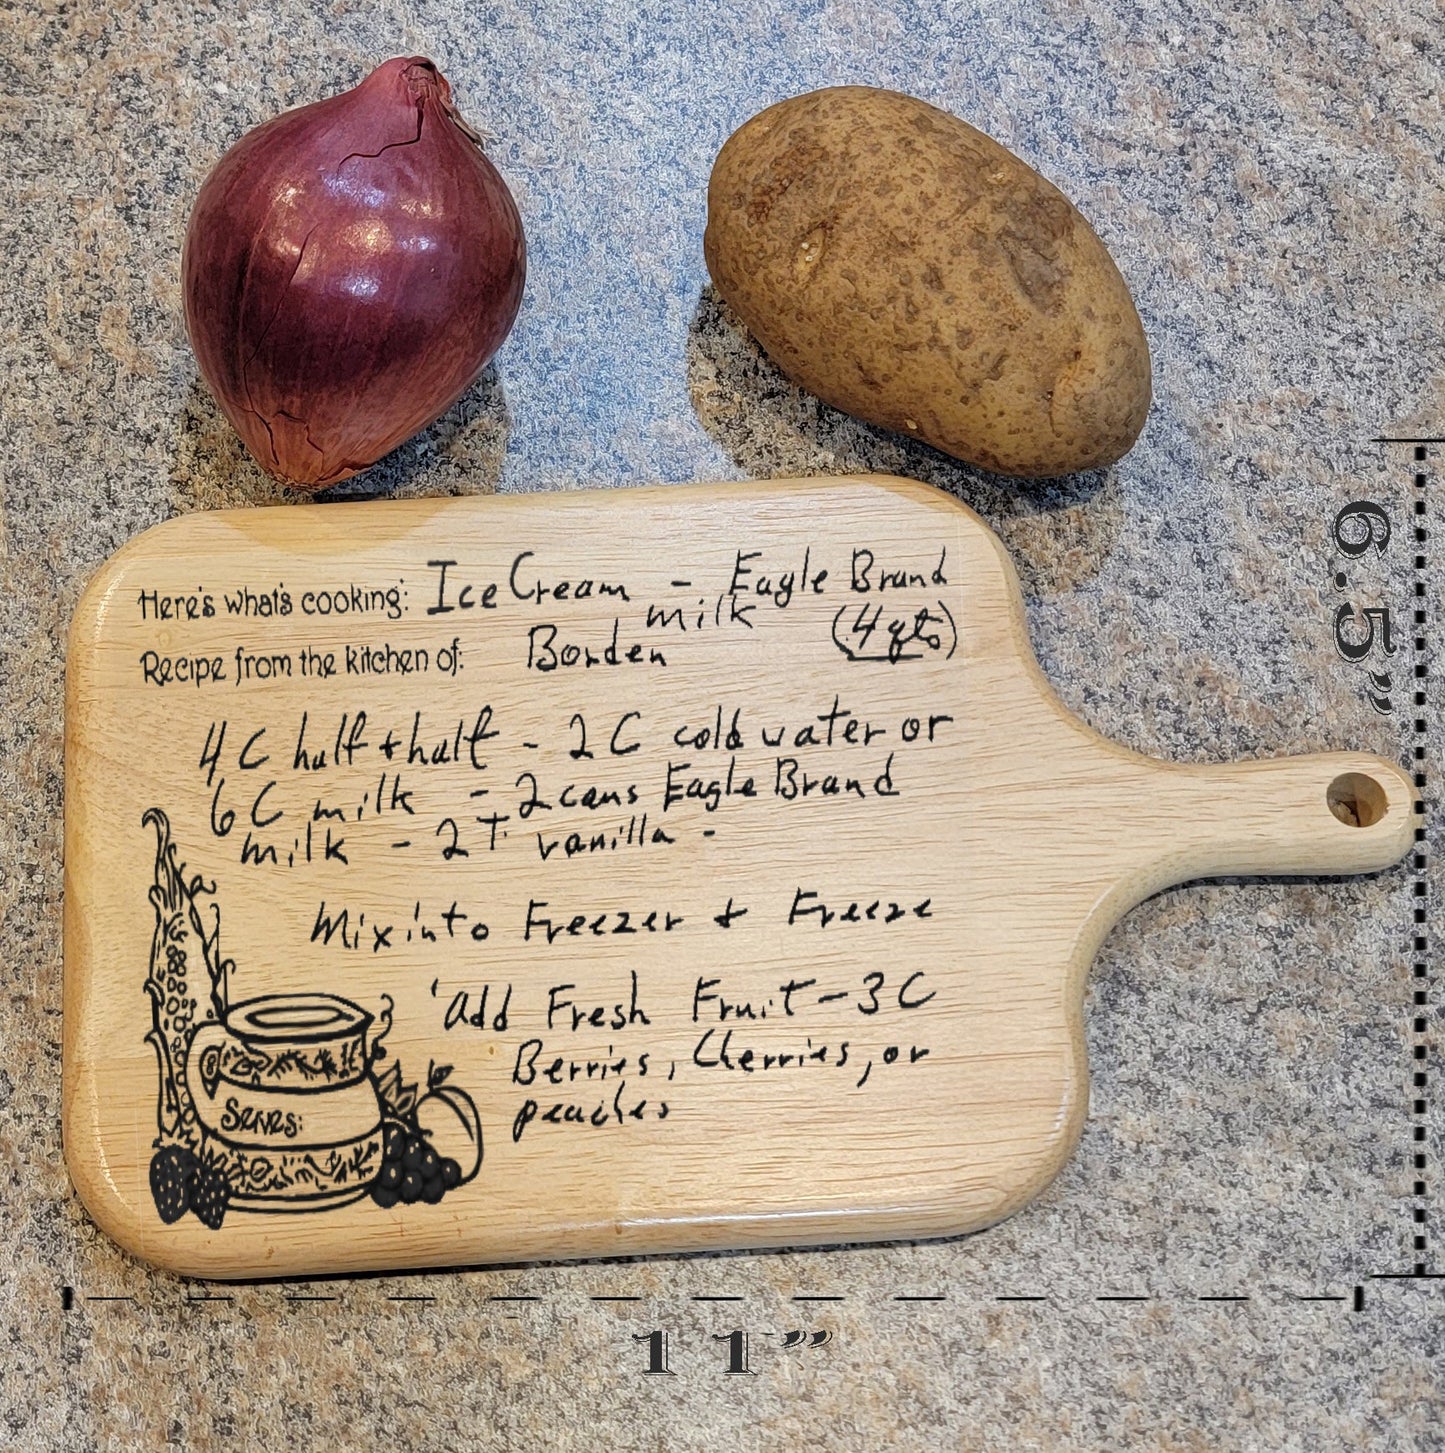 Here's what's cooking: Ice Cream - Eagle Brand
milk (4 qts)
Recipe from the kitchen of: Borden
4 C half + half - 2 C cold water or
6 C milk - 2 cans Eagle Brand
milk - 2 T vanilla -
Mix into Freezer + Freeze
'add Fresh Fruit - 3 C
Berries, Cherries, or
peaches
Serves:
6.5”
11”